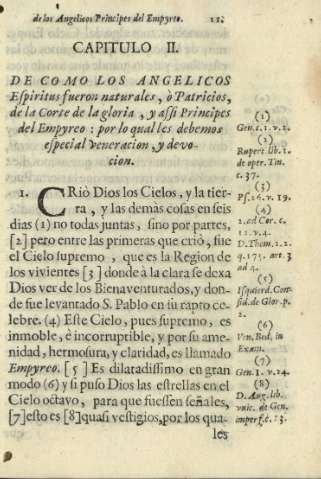 de los Angelicos Principes del Empyreo.
CAPITULO II.
DE COMO LOS ANGELICOS
Espiritus fueron naturales, ò Patricios,
de la Corte de la gloria, y assi Principes
del Empyreo: por lo qual les debemos
especial veneracion, y devo-
cion.
1. CRiò Dios los Cielos, y la tier-
ra, y las demàs cosas en seis
dias (1) no todas juntas, sino por partes,
[2] pero entre las primeras que criò, fue
el Cielo supremo, que es la Region de
los vivientes [3] donde à la clara se dexa
Dios ver de los Bienaventurados, y don-
de fue levantado S. Pablo en su rapto ce-
lebre. (4) Este Cielo, pues supremo, es
inmoble, è incorruptible, y por su ame-
nidad, hermosura, y claridad, es llamado
Empyreo. [5] Es dilatadissimo en gran
modo (6) y si puso Dios las estrellas en el
Cielo octavo, para que fuessen señales,
[7] esto es [8] quasi vestigios, por los qua-
les
(1)
Gen. c. 1. v. 2.
(2)
Rupert. lib. 1.
de oper. Tin.
c. 37.
(3)
Ps. 26. v. 19.
(4)
2. ad Cor. c.
12. v. 4.
D. Thom. 2. 2.
q. 175. art. 3
ad 4.
(5)
de Glor. p.
2.
(6)
Ven. Bed. in
Exam.
(7)
Gen. 1. v. 14.
(8)
D. Aug. lib.
vnic. de Gen.
imperf. c. 13.